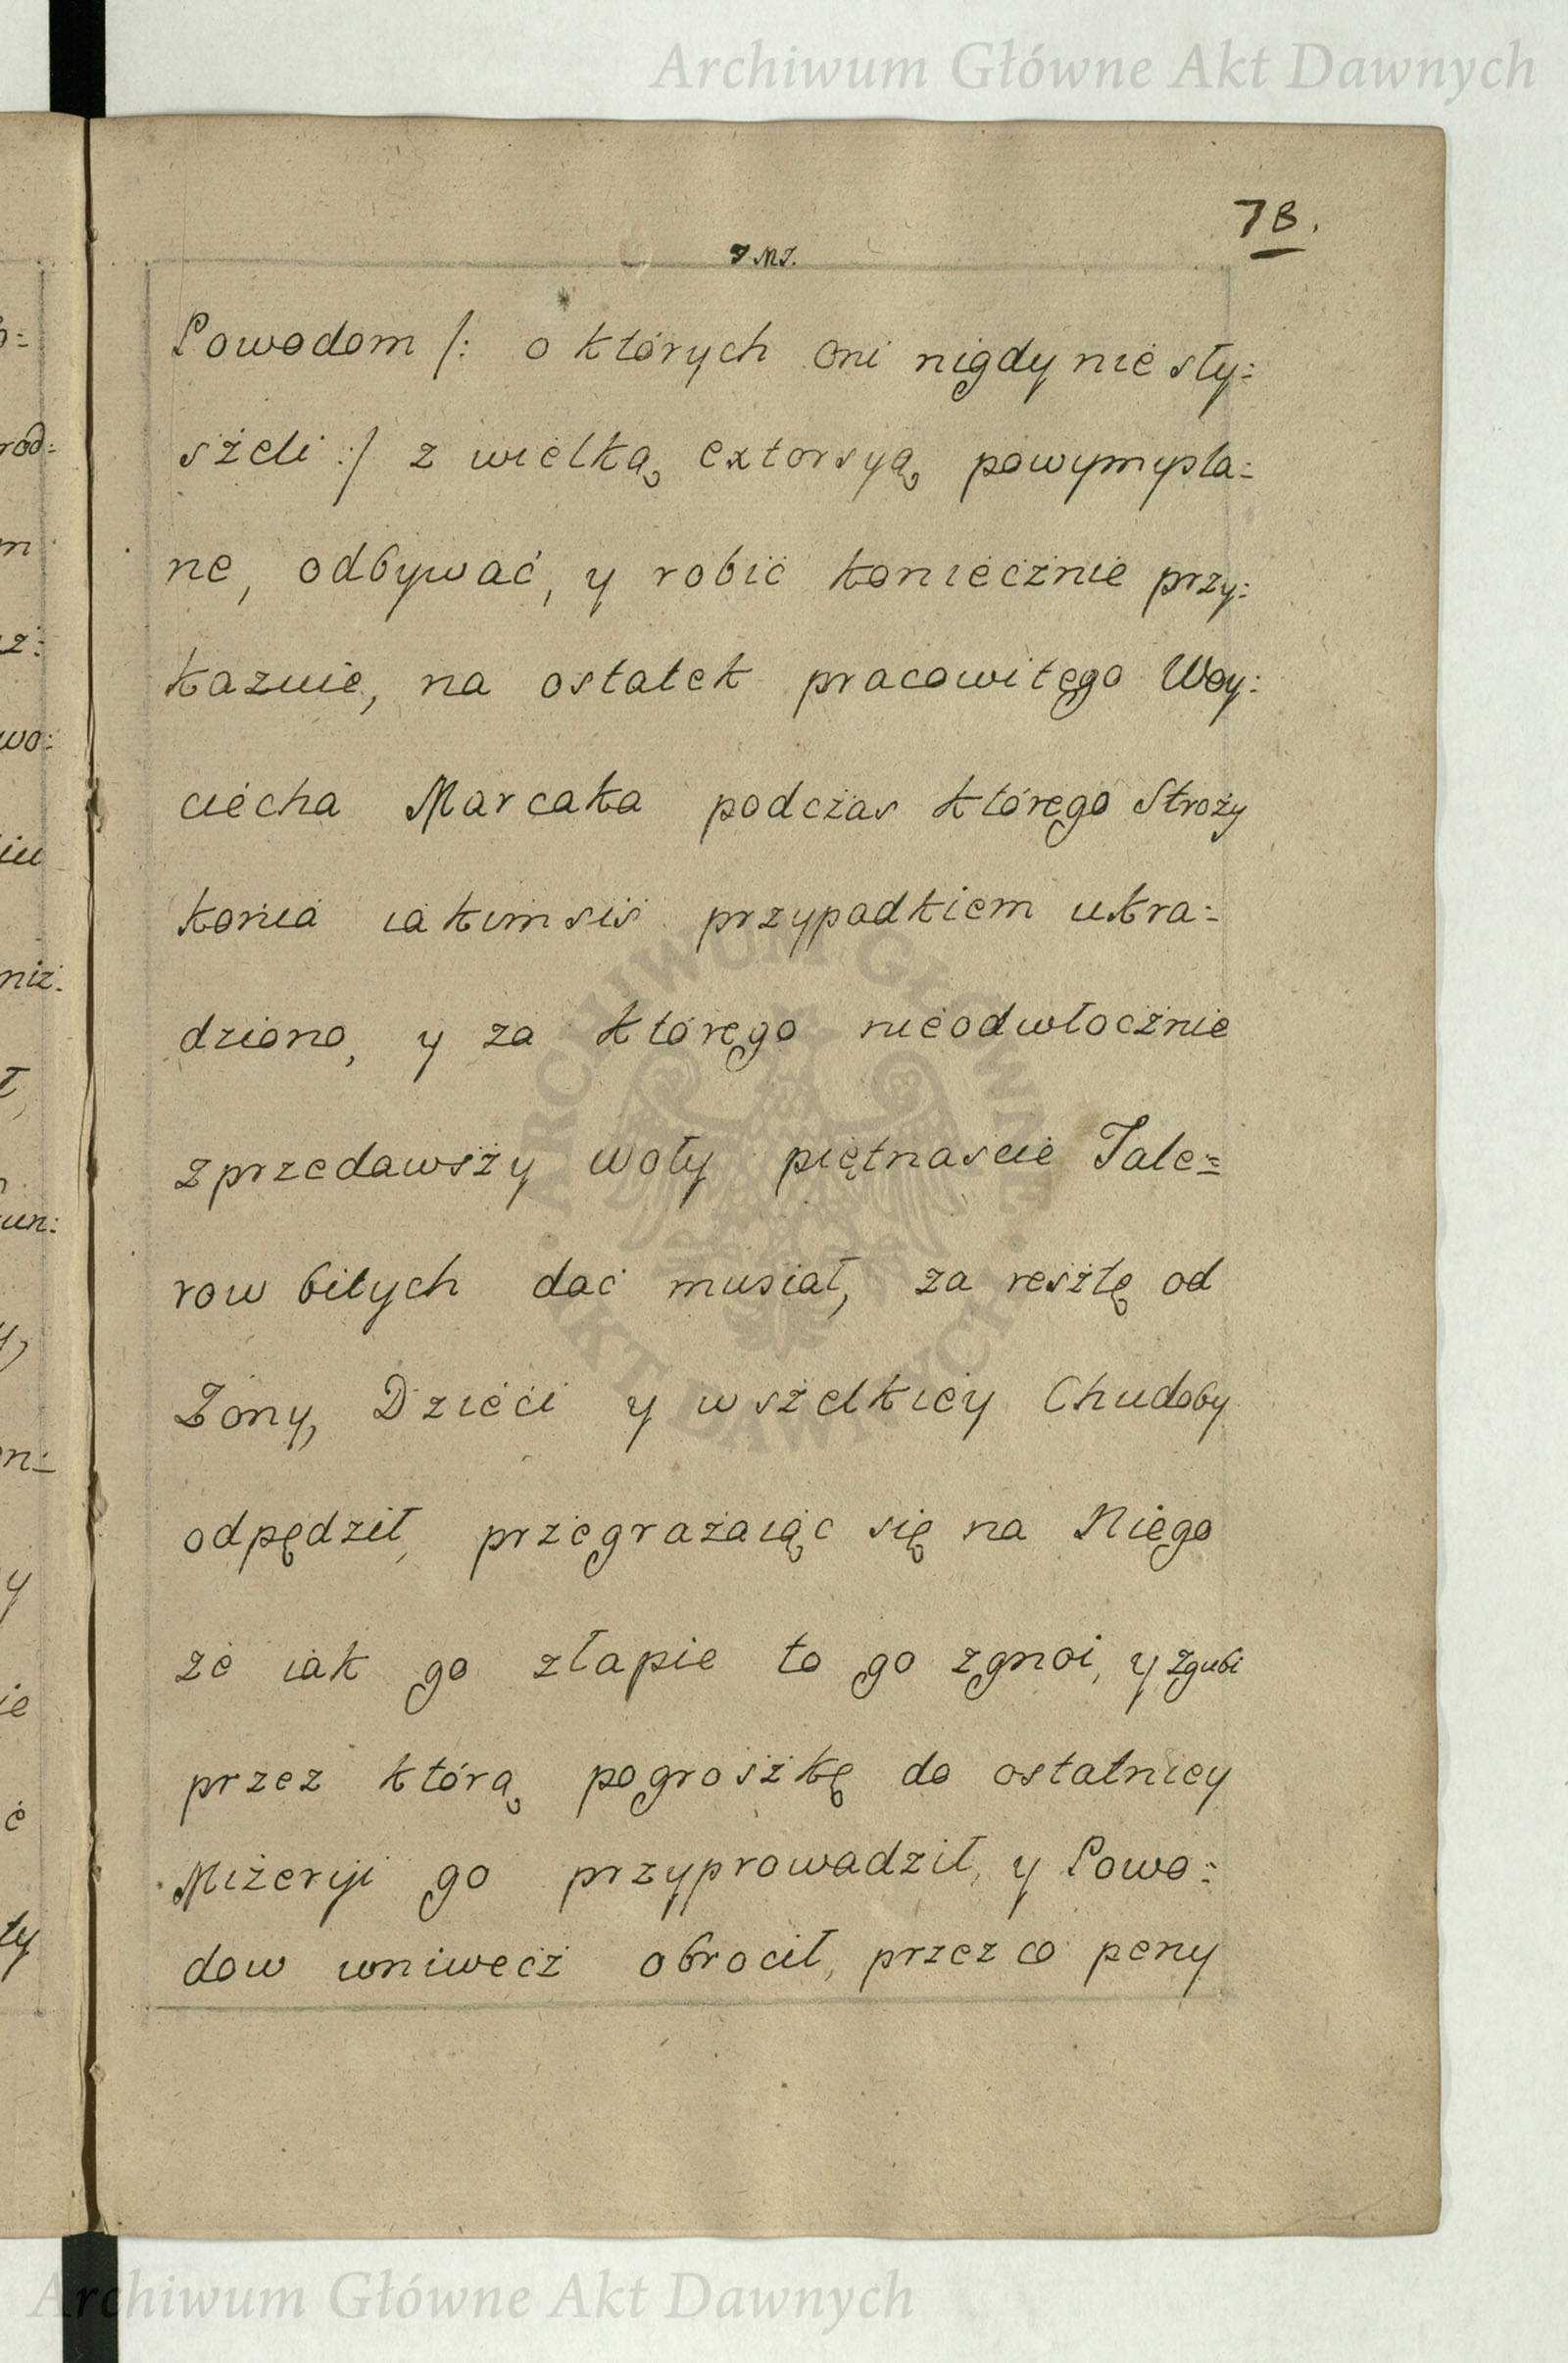 Archiwum Główne Akt Dawnych
78.
Powodom /: o których oni nigdy nie sły:
szeli :/ z wielką extorsyą powymysla:
ne, odbywać, y robić koniecznie przy:
kazuie, na ostatek pracowitego Woy:
ciecha Marcaka podczas którego Stroży
konia iakimsiś przypadkiem ukra=
dziono, y za którego nieodwłocznie
zprzedawszy woły piętnascie Tale=
row bitych dać musiał, za resztę od
Żony, Dzieći y wszelkiey Chudoby
odpędził, przegrażaiąc się na Niego
że iak go złapie to go zgnoi, y zgubi
przez którą pogroszkę do ostatniey
Mizeryji go przyprowadził, y Powo=
dow wniwecz obrocił, przez co peny
ARCHIWUM GŁÓWNE · AKT DAWNYCH ·
Archiwum Główne Akt Dawnych